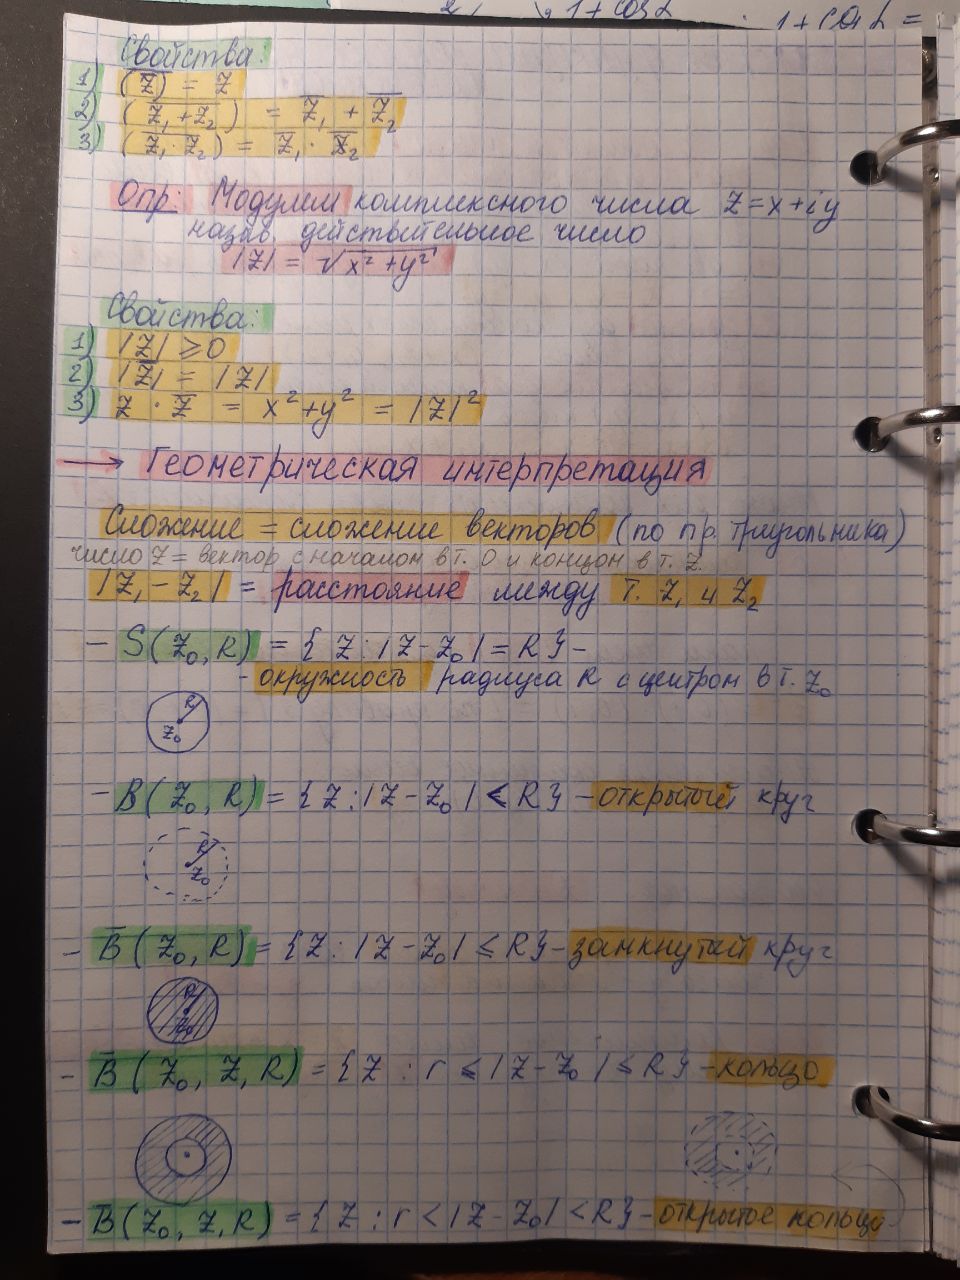 1 + cos α
1 + cos α =
Свойства:
1) (z̅)̅ = z
2) (z₁ + z₂)̅ = z̅₁ + z̅₂
3) (z₁ · z₂)̅ = z̅₁ · z̅₂
Опр: Модулем комплексного числа z = x + iy
назыв. действительное число
|z| = √(x² + y²)
Свойства:
1) |z| ≥ 0
2) |z̅| = |z|
3) z · z̅ = x² + y² = |z|²
→ Геометрическая интерпретация
Сложение = сложение векторов (по пр. триугольника)
число z = вектор с началом в т. 0 и концом в т. z.
|z₁ − z₂| = расстояние между т. z₁ и z₂
− S(z₀, R) = { z : |z − z₀| = R } −
- окружность радиуса R с центром в т. z₀
R
z₀
− B(z₀, R) = { z : |z − z₀| < R } − открытый круг
R
z₀
− B̅(z₀, R) = { z : |z − z₀| ≤ R } − замкнутый круг
R
z₀
− B̅(z₀, z, R) = { z : r ≤ |z − z₀| ≤ R } − кольцо
− B(z₀, z, R) = { z : r < |z − z₀| < R } − открытое кольцо